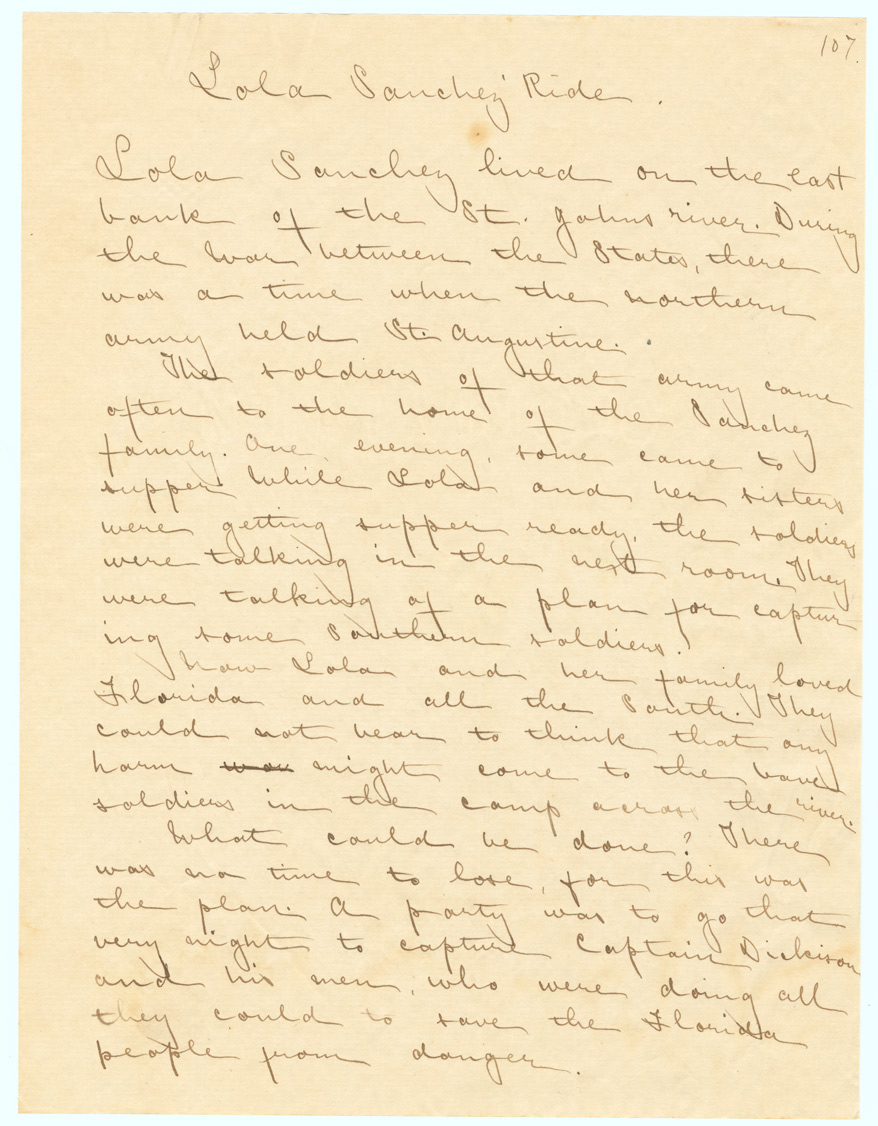 107.
Lola Sanchez' Ride.
Lola Sanchez lived on the east
bank of the St. Johns river. During
the War between the States, there
was a time when the northern
army held St. Augustine.
The soldiers of that army came
often to the home of the Sanchez
family. One evening, some came to
supper While Lola and her sisters
were getting supper ready, the soldiers
were talking in the next room. They
were talking of a plan for captur
ing some Southern soldiers.
Now Lola and her family loved
Florida and all the South. They
could not bear to think that any
harm might come to the brave
soldiers in the camp across the river.
What could be done? There
was no time to lose, for this was
the plan. A party was to go that
very night to capture Captain Dickison
and his men, who were doing all
they could to save the Florida
people from danger.